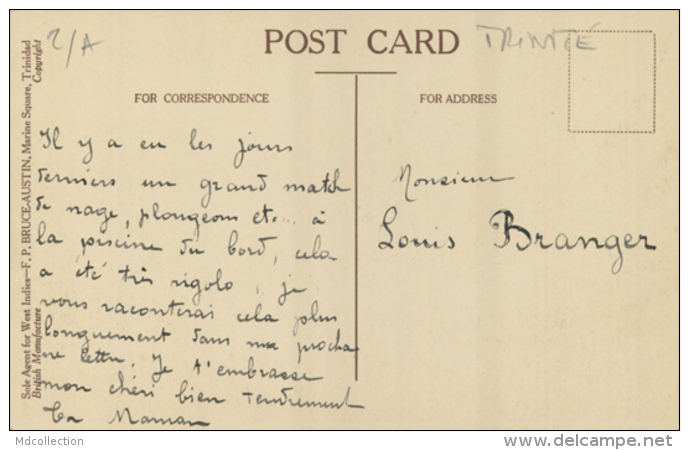 2/A
POST CARD
TRINITÉ
FOR CORRESPONDENCE
FOR ADDRESS
Sole Agent for West Indies—F. P. BRUCE-AUSTIN, Marine Square, Trinidad
British Manufacture
Copyright
Il y a eu les jours
derniers un grand match
de nage, plongeons etc... à
la piscine du bord, cela
a été très rigolo, je
vous raconterai cela plus
longuement dans ma procha
ne lettre. Je t'embrasse
mon chéri bien tendrement
Ta Maman
Monsieur
Louis Branger
Mdcollection
delcampe.net